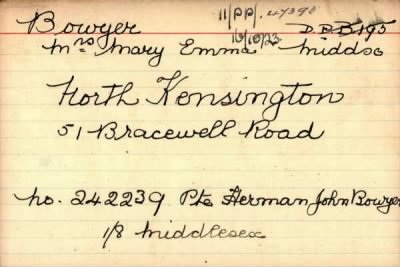 11/PP/.47398
Bowyer 16/10/23 D.P.B195
Mrs Mary Emma Middsx
North Kensington
51 Bracewell Road
No. 242239 Pte Herman John Bowyer
1/8 Middlesex